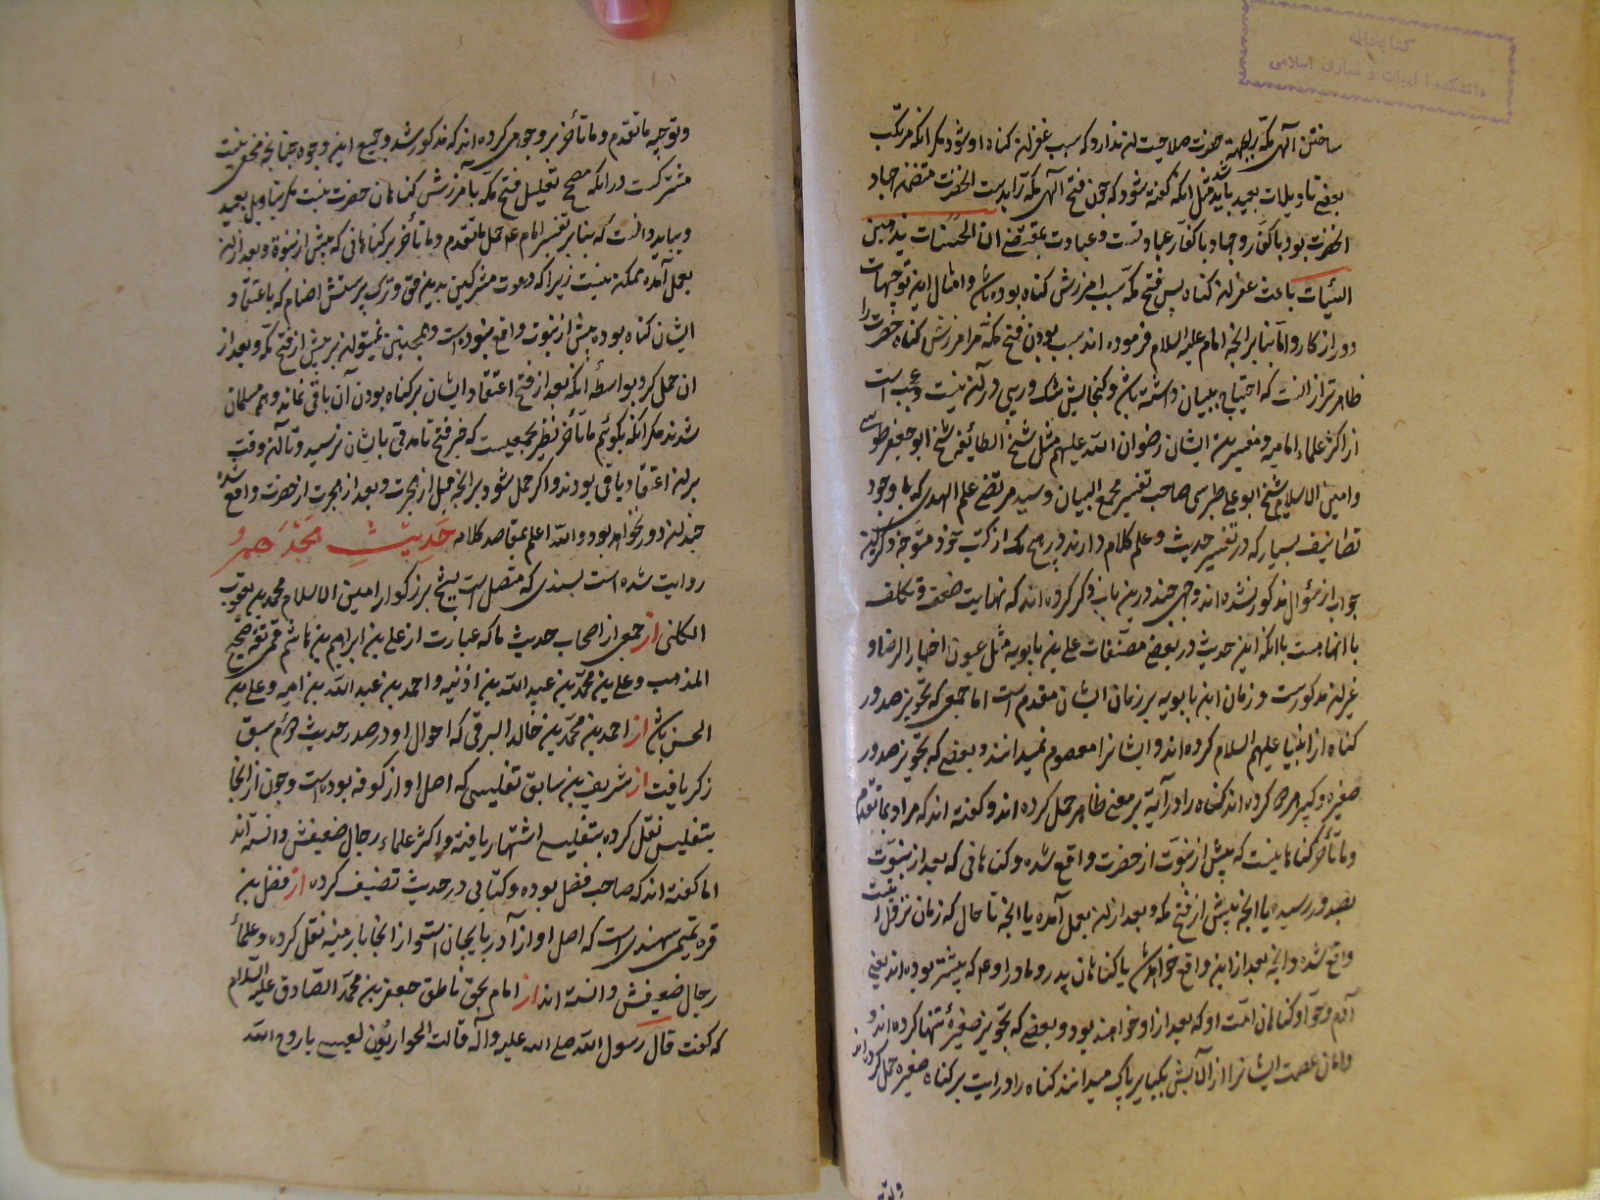 ساختن الهی مکه را بجهة حضرت صلاحیت ان ندارد که سبب غفران کناه او شود مکر انکه مرتکب
بعضی تاویلات بعید باید شد مثل انکه کفته شود که چون فتح الهی مکه را بدست انحضرت متضمن جهاد
انحضرت بود با کفار و جهاد با کفار عبادتست و عبادت بمقتضی ان الحسنات یذهبن
السیئات باعث غفران کناه پس فتح مکه سبب امرزش کناه بوده باشد و امثال این توجیهات
دور از کار و اما بنابر انچه امام علیه السلام فرموده اند سبب بودن فتح مکه مر امرزش کناه حضرت را
ظاهرتر از انست که احتیاج ببیان داشته باشد و کنجایش شک و ریبی در ان نیست و عجب است
از اکثر علماء امامیه و مفسرین ایشان رضوان الله علیهم مثل شیخ الطائفه شیخ ابو جعفر طوسی
و امین الاسلام شیخ ابو علی طبرسی صاحب تفسیر مجمع البیان و سید مرتضی علم الهدی که با وجود
تصانیف بسیار که در تفسیر حدیث و علم کلام دارند در هیچ یک از کتب خود متوجه ذکر این
جواب از سؤال مذکور نشده اند و وجهی چند درین باب ذکر کرده اند که نهایت ضعف و تکلف
با انهاست با انکه این حدیث در بعضی مصنفات علی بن بابویه مثل عیون اخبار الرضا و
غیر ان مذکورست و زمان ابن بابویه بر زمان ایشان مقدم است اما جمعی که تجویز صدور
کناه از انبیا علیهم السلام کرده اند و ایشانرا معصوم نمیدانند و بعضی که تجویز صدور
صغیره و کبیره کرده اند کناه را در آیه بر معنی ظاهر حمل کرده اند و کفته اند که مراد بما تقدم
و ما تأخر کناهانیست که پیش از نبوت از حضرت واقع شده و کناهانی که بعد از نبوت
بصدور رسیده یا انچه پیش از فتح مکه و بعد از ان بعمل آمده یا انچه تا حال که زمان نزول ایتست
واقع شده و انچه بعد از این واقع خواهد شد یا کناهان پدر و مادر او که پیشتر بوده اند یعنی
آدم و حوا و کناهان امت او که بعد از او خواهند بود و بعضی که تجویز صغیره تنها کرده اند و
دامان عصمت ایشانرا از آلایش بکبایر پاک میدانند کناه را در ایت بر کناه صغیره حمل کرده اند
و توجیه ما تقدم و ما تأخر بر وجوهی کرده اند که مذکور شد و جمیع این وجوه چنانچه مخفی نیست
مشترکست در انکه مصحح تعلیل فتح مکه بآمرزش کناهان حضرت نیست مکر بتاویل بعید
و بباید دانست که بنابر تفسیر امام ع حمل ما تقدم و ما تأخر بر کناهانی که پیش از نبوة و بعد از ان
بعمل آمده ممکن نیست زیرا که دعوت مشرکین بدین حق و ترک پرستش اصنام که باعتقاد
ایشان کناه بوده پیش از نبوت واقع نبوده است و همچنین نمیتوان بر پیش از فتح مکه و بعد از
ان حمل کرد بواسطهٔ انکه بعد از فتح اعتقاد ایشان بر کناه بودن آن باقی نماند و همه مسلمان
شدند مکر انکه بکوئیم ما تأخر نظر بجمعیست که خبر فتح تا مدتی بایشان نرسید و تا آن وقت
بر ان اعتقاد باقی بودند و اکر حمل شود بر انچه قبل از هجرت و بعد از هجرت از حضرت واقع شده
چندان دور نخواهد بود و الله اعلم بمقاصد کلامه حدیث هجدهم
روایت شده است بسندی که متصل است بشیخ بزرکوار امین الاسلام محمد بن یعقوب
الکلینی از جمعی از اصحاب حدیث ما که عبارت از علی بن ابراهیم بن هاشم قمی ثقه صحیح
المذهب و علی بن محمد بن عبد الله بن اذینه و احمد بن عبد الله بن امیه و علی بن
الحسن باشد از احمد بن محمد بن خالد البرقی که احوال او در صدر حدیث دوم سبق
ذکر یافت از شریف بن سابق تفلیسی که اصل او از کوفه بوده است و چون از انجا
بتفلیس نقل کرده بتفلیسی اشتهار یافته و اکثر علماء رجال ضعیفش دانسته اند
اما کفته اند که صاحب فضل بوده و کتابی در حدیث تصنیف کرده از فضل بن
قره تمیمی سهندی است که اصل او از آذربایجان است و از انجا بارمنیه نقل کرده و علماء
رجال ضعیفش دانسته اند از امام بحق ناطق جعفر بن محمد الصادق علیه السلام
که کفت قال رسول الله صلی الله علیه و آله قالت الحواریون لعیسی یا روح الله